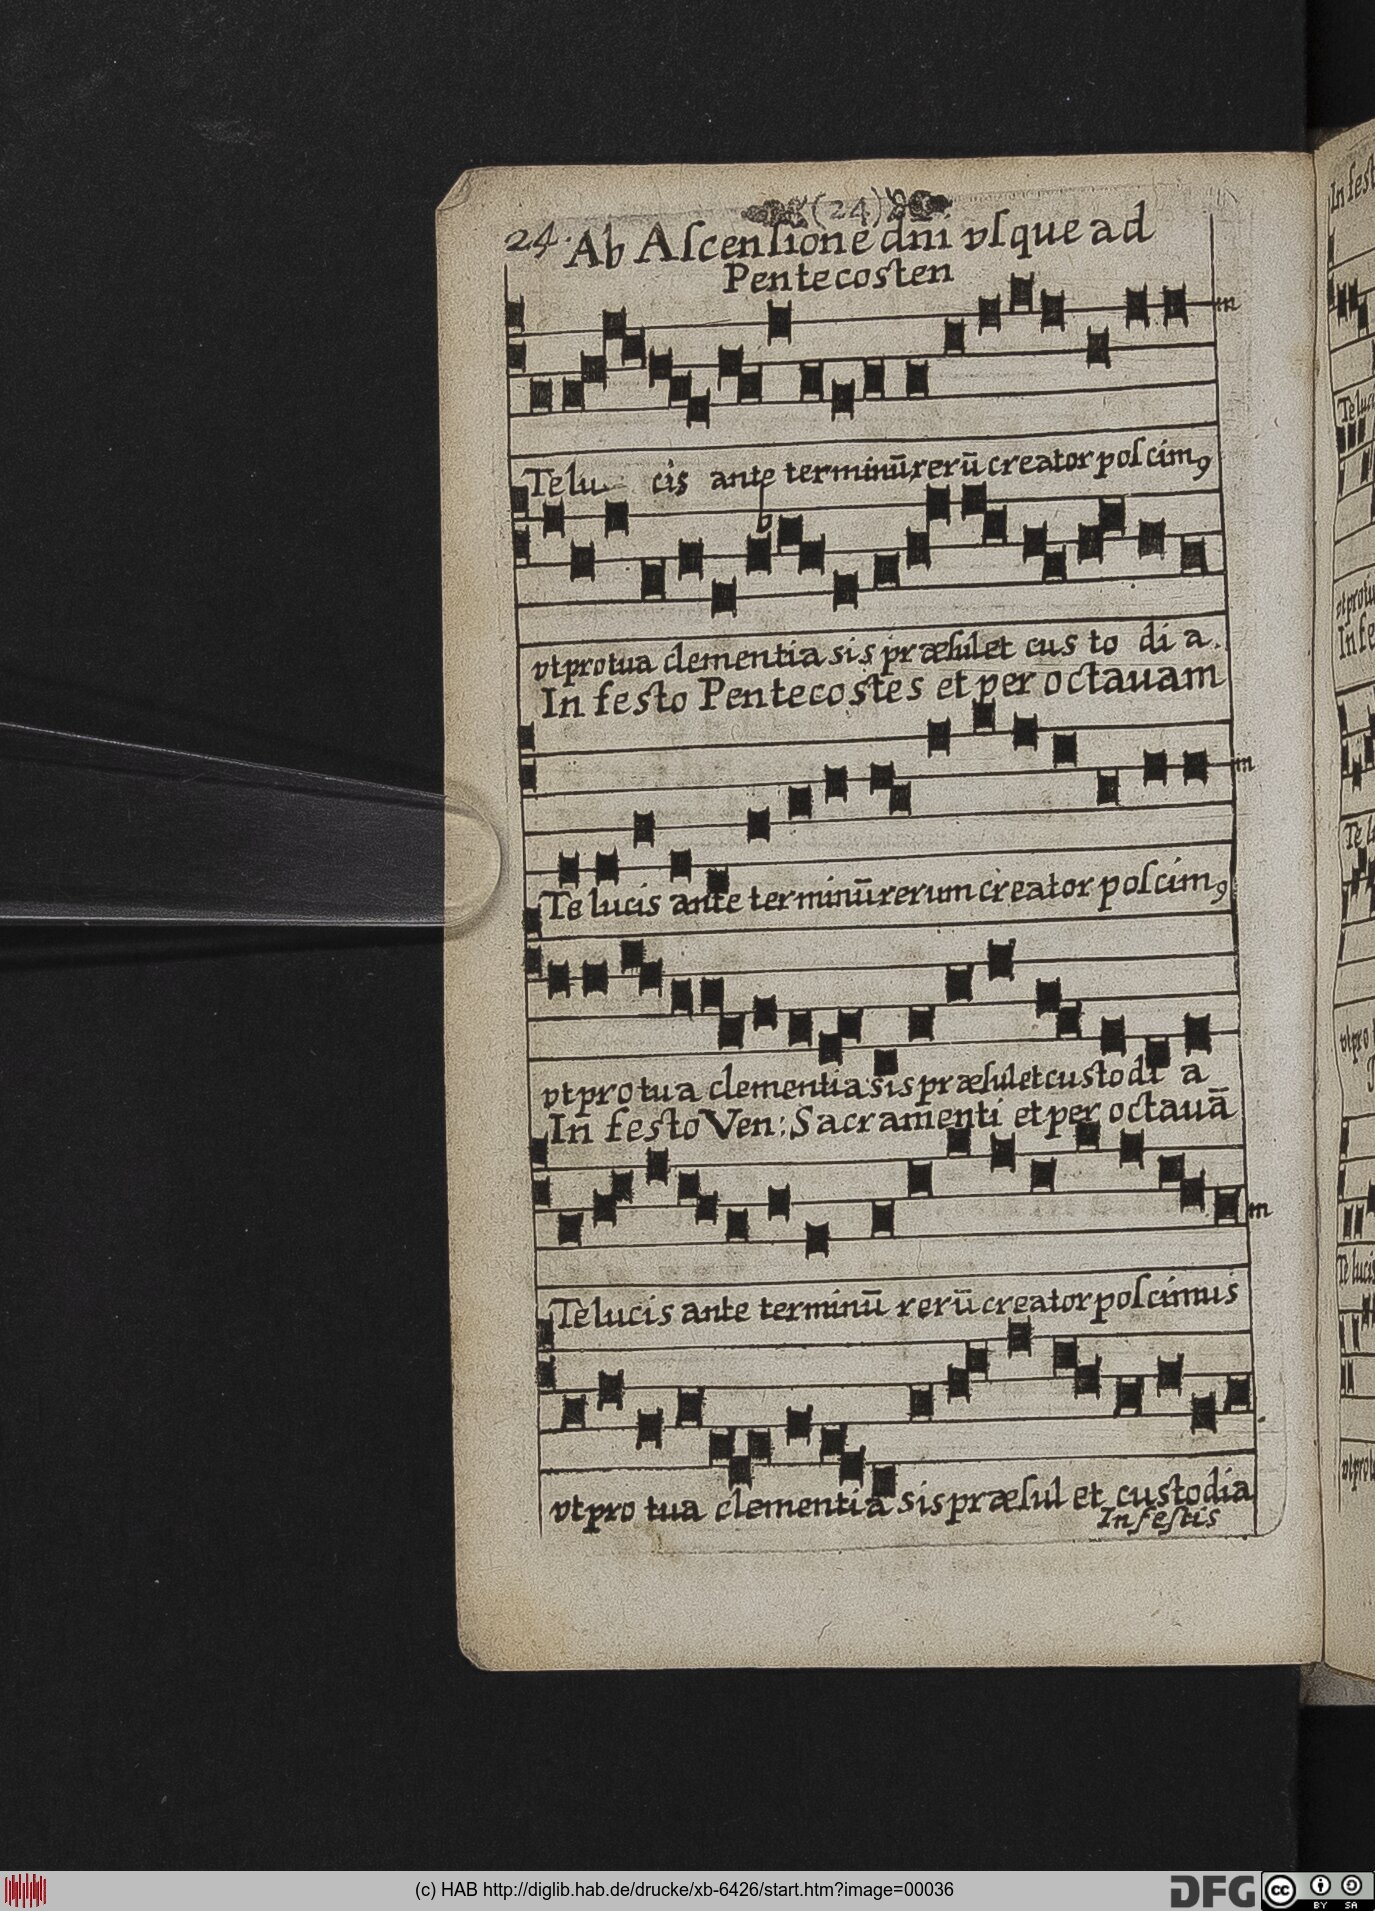 (24)
24. Ab Ascensione dni̅ vsque ad
Pentecosten
Te lu cis ante terminū rerū creator poscimꝰ
b
vt pro tua clementia sis præsul et cus to di a.
In festo Pentecostes et per octauam
Te lucis ante terminū rerum creator poscimꝰ
vt pro tu a clementia sis præsul et custodi a
In festo Ven: Sacramenti et per octauā
Te lucis ante terminū rerū creator poscimus
vt pro tua clementia sis præsul et custodia
In festis
(c) HAB http://diglib.hab.de/drucke/xb-6426/start.htm?image=00036
DFG
cc BY SA